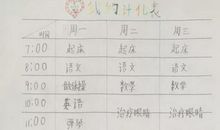 我的计化表
时间 周一 周二 周三
7:00 起床 起床 起床
8:00 语文 语文 语文
9:00 做体操 数学 数学
10:00 英语 治疗眼睛 治疗眼睛
11:00 弹琴